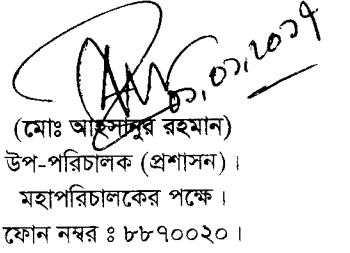 ০১.০১.২০১৭
(মোঃ আহসানুর রহমান)
উপ-পরিচালক (প্রশাসন)।
মহাপরিচালকের পক্ষে।
ফোন নম্বর ঃ ৮৮৭০০২০।